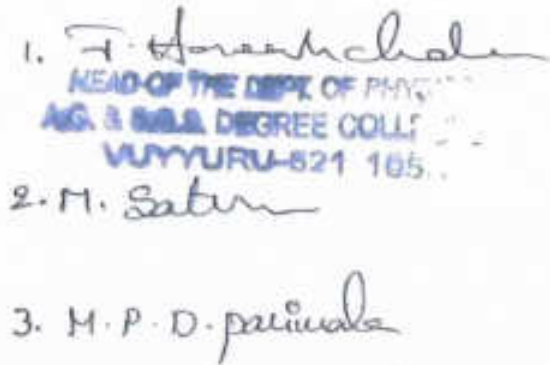 1. T.
HEAD OF THE DEPT. OF
A.G. & S.G.S. DEGREE
VUYYURU-521 165.
2. M.
3. M. P. D. parimala